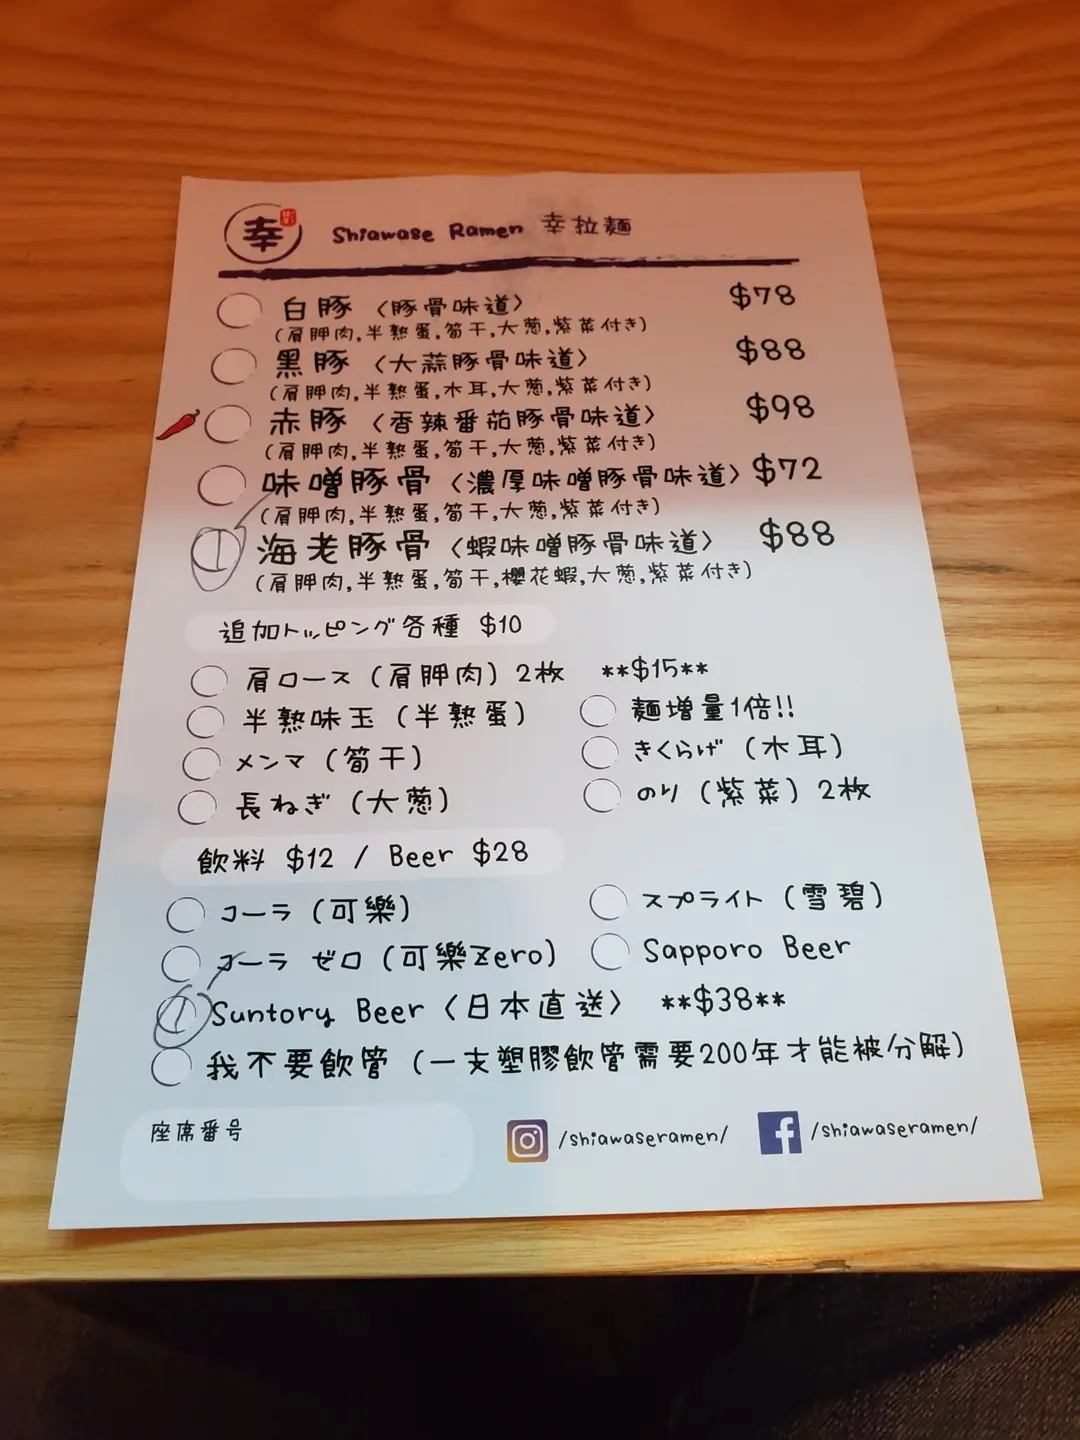 幸
Shiawase Ramen 幸拉麵
白豚〈豚骨味道〉 $78
(肩胛肉,半熟蛋,筍干,大葱,紫菜付き)
黑豚〈大蒜豚骨味道〉 $88
(肩胛肉,半熟蛋,木耳,大葱,紫菜付き)
赤豚〈香辣番茄豚骨味道〉 $98
(肩胛肉,半熟蛋,筍干,大葱,紫菜付き)
味噌豚骨〈濃厚味噌豚骨味道〉 $72
(肩胛肉,半熟蛋,筍干,大葱,紫菜付き)
1 海老豚骨〈蝦味噌豚骨味道〉 $88
(肩胛肉,半熟蛋,筍干,櫻花蝦,大葱,紫菜付き)
追加トッピング各種 $10
肩ロース(肩胛肉)2枚 **$15**
半熟味玉(半熟蛋) 麵增量1倍!!
メンマ(筍干) きくらげ(木耳)
長ねぎ(大葱) のり(紫菜)2枚
飲料 $12 / Beer $28
コーラ(可樂) スプライト(雪碧)
コーラ ゼロ(可樂Zero) Sapporo Beer
1 Suntory Beer〈日本直送〉 **$38**
我不要飲管(一支塑膠飲管需要200年才能被分解)
座席番号 /shiawaseramen/ /shiawaseramen/